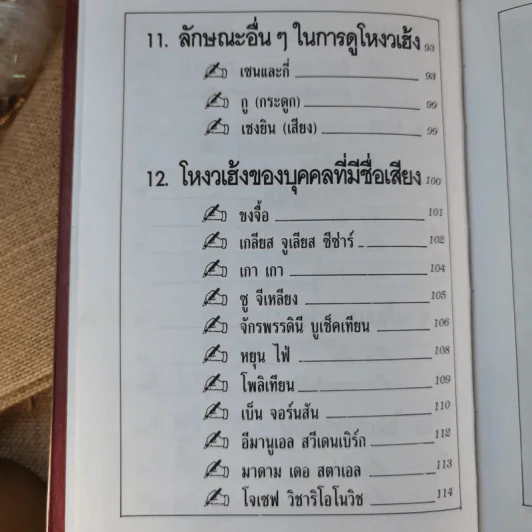 11. ลักษณะอื่น ๆ ในการดูโหงวเฮ้ง 93
เซนและกี่ 93
กู (กระดูก) 99
เซงยิน (เสียง) 99
12. โหงวเฮ้งของบุคคลที่มีชื่อเสียง 100
ขงจื้อ 101
เกลียส จูเลียส ซีซ่าร์ 102
เกา เกา 104
ซู จีเหลียง 105
จักรพรรดินี บูเช็คเทียน 106
หยุน ไฟ่ 108
โพลิเทียน 109
เบ็น จอร์นสัน 110
อีมานูเอล สวีเดนเบิร์ก 112
มาดาม เดอ สตาเอล 113
โจเซฟ วิซาริโอโนวิช 114